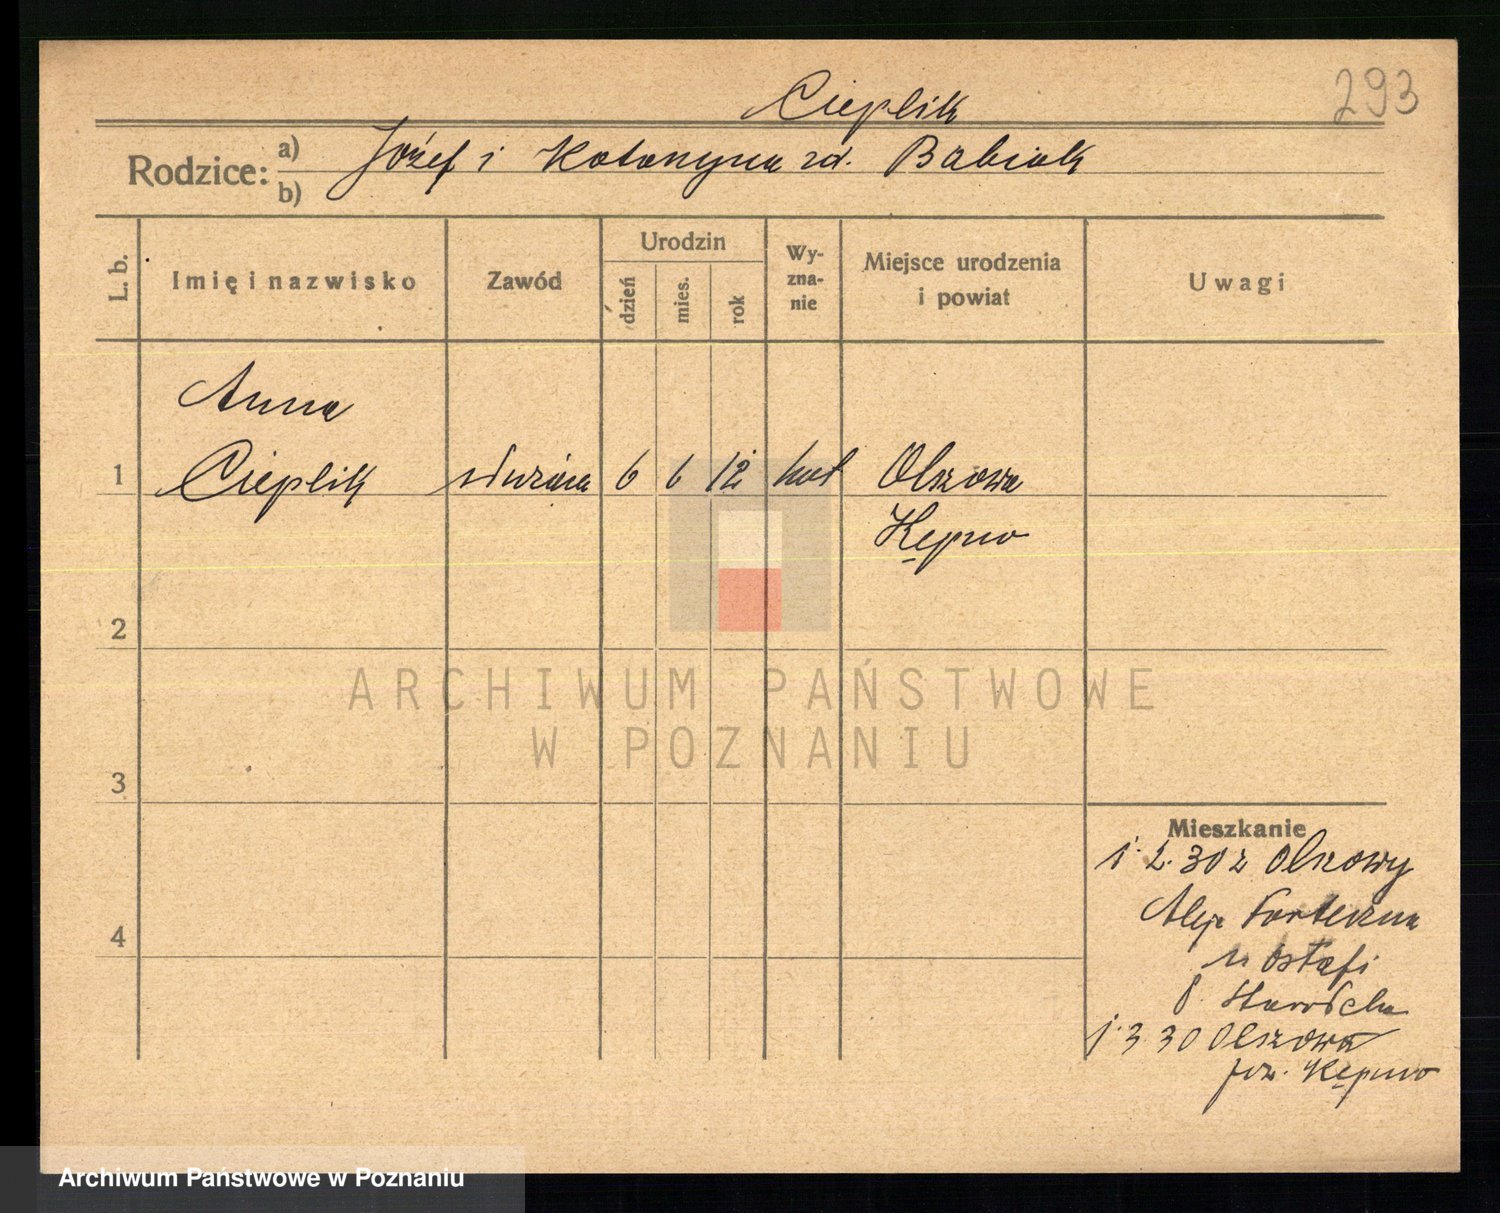 293
Cieplik
Rodzice: a) b) Józef i Katarzyna zd. Babiak
L. b. Imię i nazwisko Zawód Urodzin dzień mies. rok Wy-zna-nie Miejsce urodzenia i powiat Uwagi
Anna
1 Cieplik służąca 6 6 12 kat Olszowa
Kępno
2
ARCHIWUM PAŃSTWOWE
W POZNANIU
3
Mieszkanie
1. 2. 30 z Olszowy
4 Aleja Forteczna
u
1. 3 30 Olszowa
pow. Kępno
Archiwum Państwowe w Poznaniu